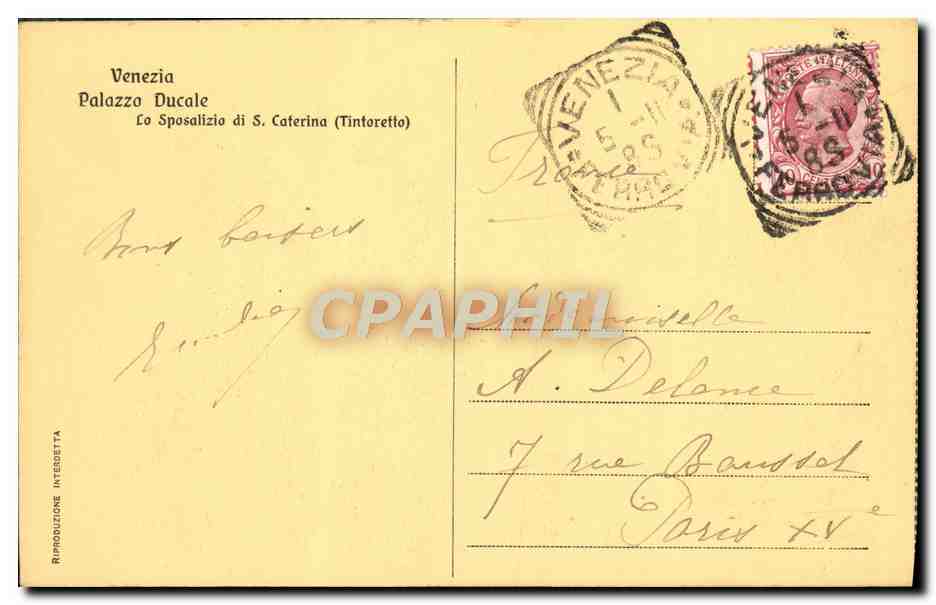 Venezia
Palazzo Ducale
Lo Sposalizio di S. Caterina (Tintoretto)
VENEZIA
FERROVIA
POSTE ITALIANE
VENEZIA
FERROVIA
10 CENT 10
France
Bons baisers
CPAPHIL
Mademoiselle
A. Delance
7 rue Bausset
Paris XVe
RIPRODUZIONE INTERDETTA